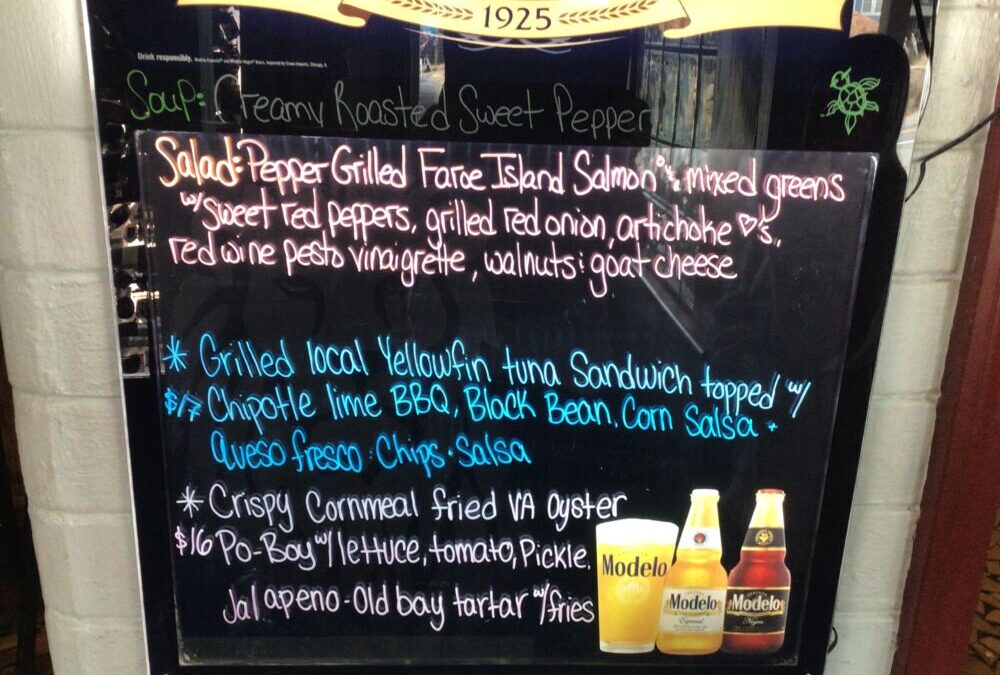 1925
Drink responsibly.
Soup: Creamy Roasted Sweet Pepper
Salad: Pepper Grilled Faroe Island Salmon mixed greens
w/ sweet red peppers, grilled red onion, artichoke ♡'s,
red wine pesto vinaigrette, walnuts : goat cheese
* Grilled local Yellowfin tuna Sandwich topped w/
$17 Chipotle lime BBQ, Black Bean. Corn Salsa +
Queso fresco : Chips · Salsa
* Crispy Cornmeal fried VA Oyster
$16 Po-Boy w/ lettuce, tomato, Pickle,
Jalapeno-Old bay tartar w/ fries
Modelo
Modelo
Especial
Modelo
Negra